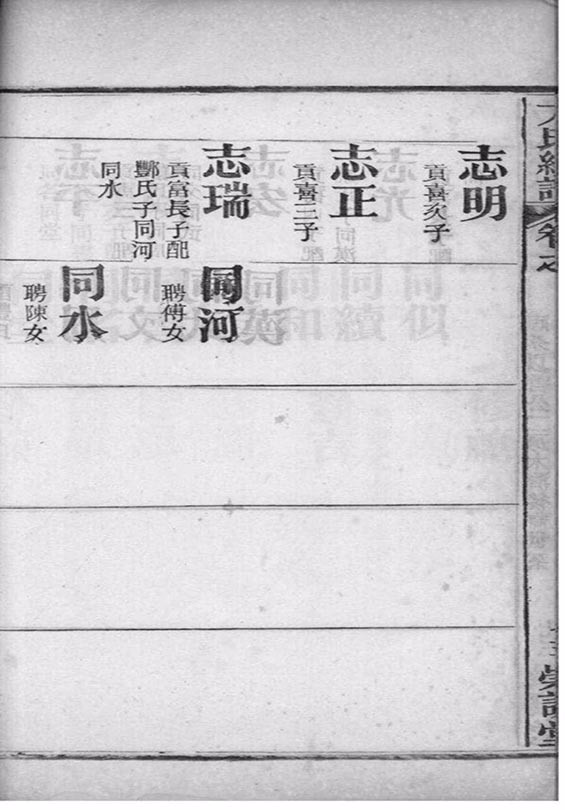 志明
貢喜次子
志正
貢喜三子
志瑞
貢富長子配
酆氏子同河
同水
同河
聘傅女
同水
聘陳女
氏續譜
卷之